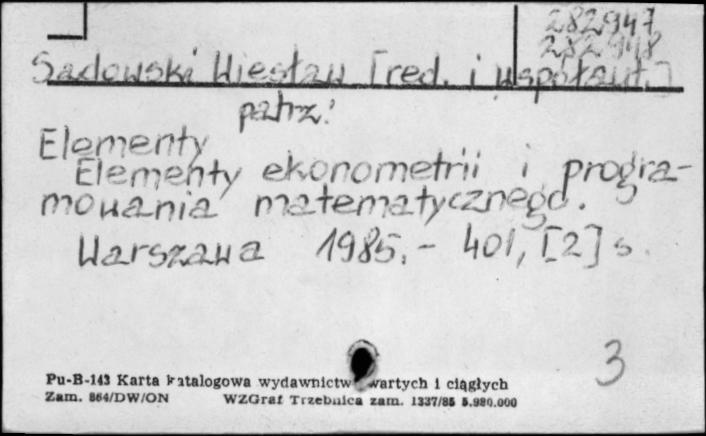 282947
282948
Sadowski Wiesław [red. i współaut.]
patrz:
Elementy
Elementy ekonometrii i progra-
mowania matematycznego.
Warszawa 1985.- 401, [2] s.
3
Pu-B-143 Karta katalogowa wydawnictw zwartych i ciągłych
Zam. 864/DW/ON WZGraf Trzebnica zam. 1337/85 5.980.000